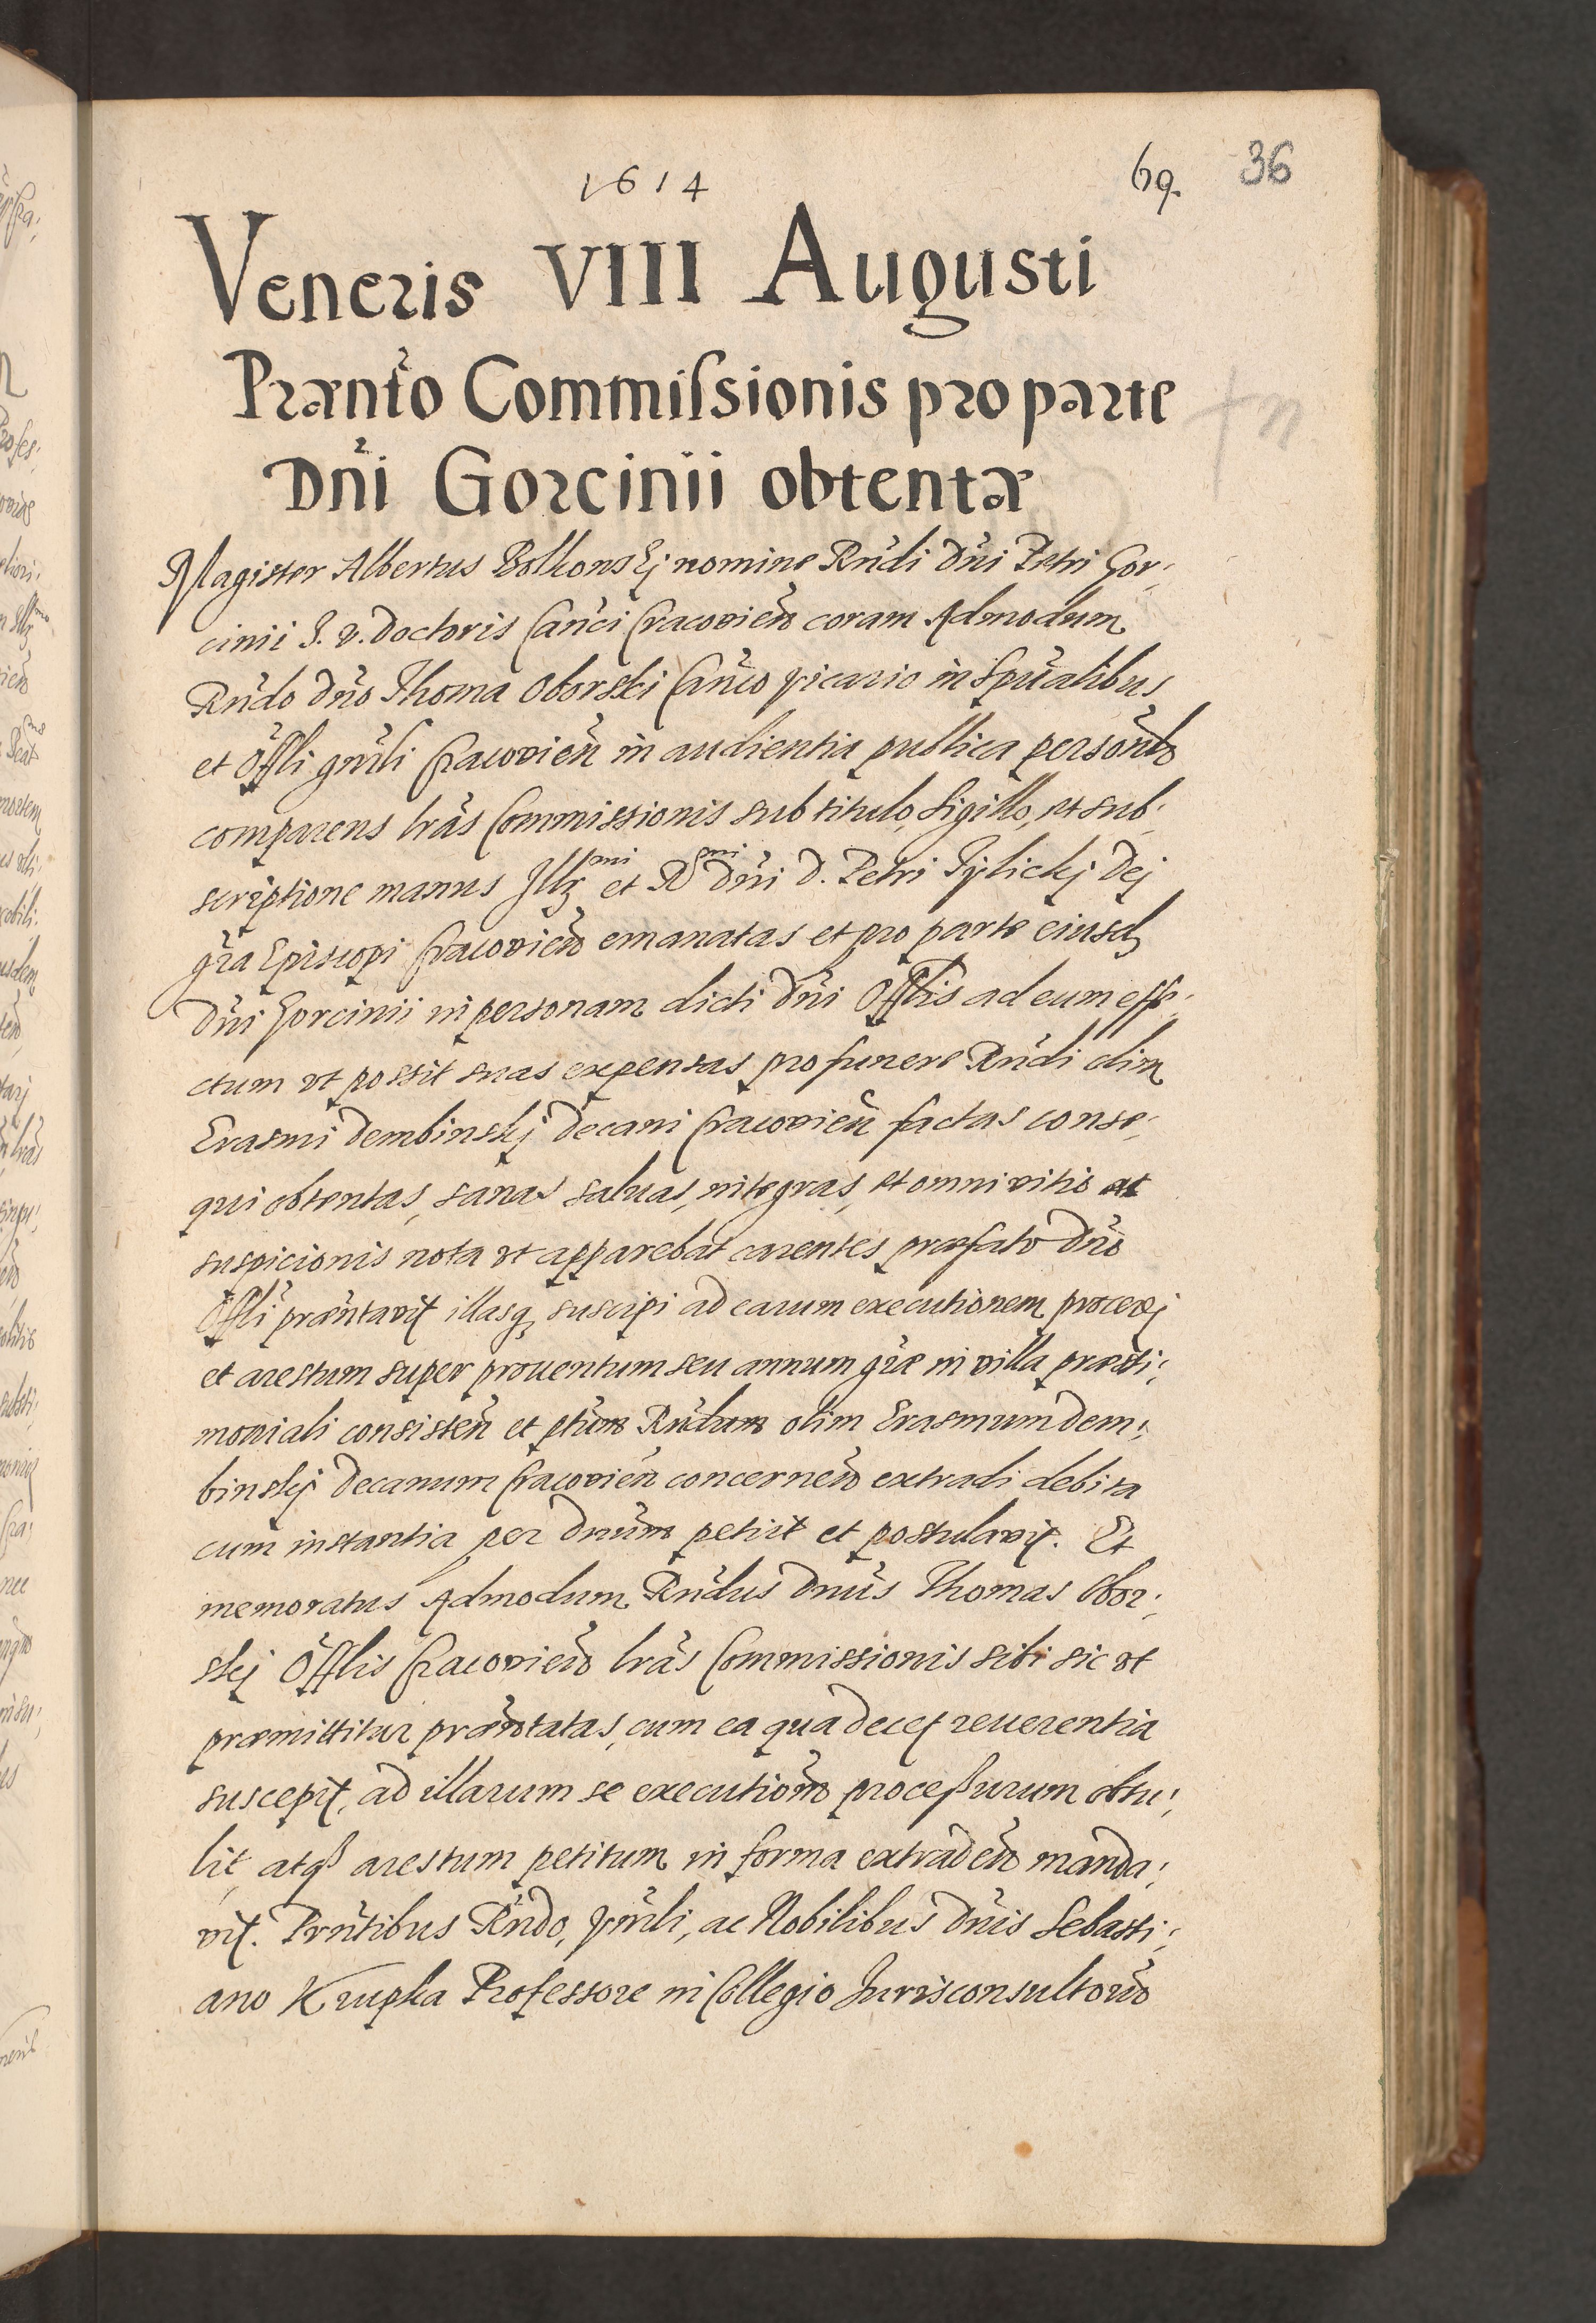 1614 69. 36
Veneris VIII Augusti
Præñto Commiſsionis pro parte
Dñi Gorcinii obtentæ
Magister Albertus Bolkonskj nomine Rñdi Dñi Petri Gor:
cinii I. V. Doctoris Cañci Cracovieñ coram Admodum
Rñdo Dño Thoma Oborski Cañco Vicario in Spũalibus
et Offli gñrli Cracovieñ in audientia publica personlr
comparens lrãs Commissionis sub titulo, Sigillo, et sub:
scriptione manus Illr mi et R mi Dñi D. Petri Tylickj Dej
gr̃a Episcopi Cracovieñ emanatas et pro parte eiusd
Dñi Gorcinii in personam dicti Dñi Offlis ad eum effe:
ctum vt possit suas expensas pro funere Rñdi olim
Erasmi Dembinskj Decani Cracovieñ factas conse:
qui obtentas, sanas saluas, integras, et omni vitio ac
suspicionis nota vt apparebat carentes præfato Dño
Offli præñtavit illasq suscipi ad earum executionem procedj
et arestum super prouentum seu annum gr̃æ in villa præsti:
moniali consisteñ et ptum Rñdum olim Erasmum Dem:
binskj Decanum Cracovieñ concerneñ extradi debita
cum instantia per Dnũm petiit et postulavit. Et
memoratus Admodum Rñdus Dnũs Thomas Obor:
skj Offlis Cracovieñ lrãs Commissionis sibi sic vt
præmittitur præñtatas, cum ea qua decet reuerentia
suscepit, ad illarum se executionẽ proceßurum obtu:
lit, atq arestum petitum in forma extradeñ manda:
vit. Prñtibus Rñdo, Vñrli, ac Nobilibus Dñis Sebasti:
ano Krupka Professore in Collegio Jurisconsultorũ